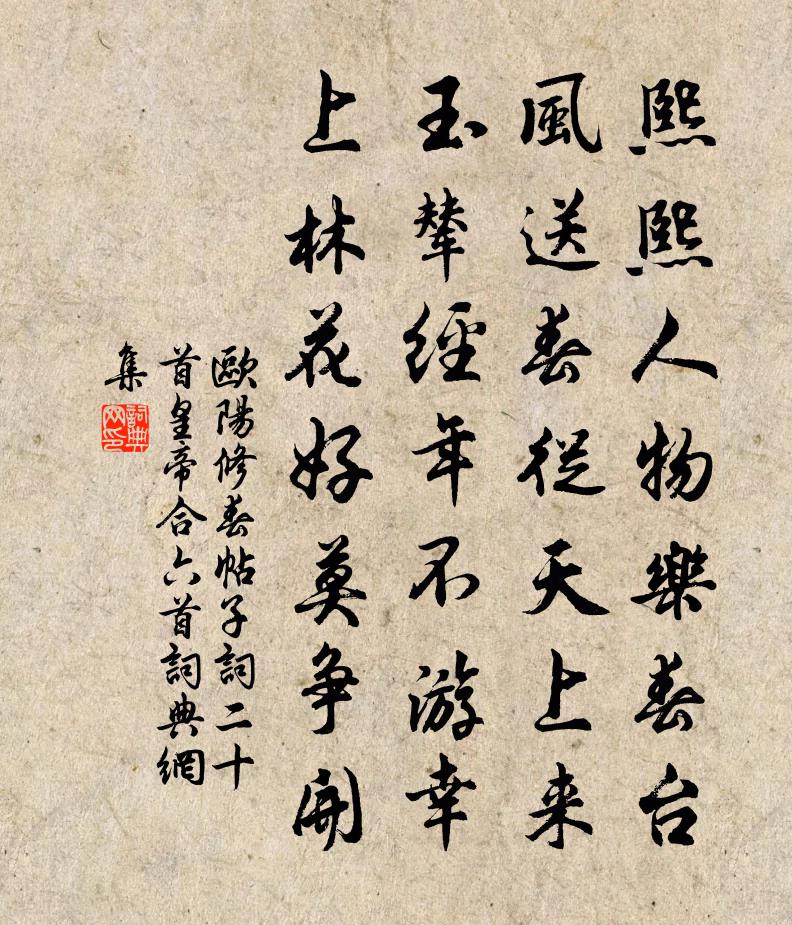 熙熙人物樂春台
風送春從天上来
玉輦經年不游幸
上林花好莫争開
歐陽修春帖子詞二十
首皇帝合六首詞典網
集
詞典
网印